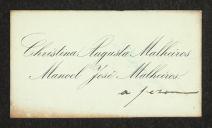 Christina Augusta Malheiros
Manoel José Malheiros
a